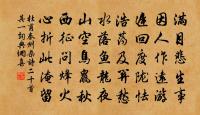 满目悲生事
因人作远游
迟回度陇怯
浩荡及关愁
水落鱼龙夜
山空鸟鼠秋
西征问烽火
心折此淹留
杜甫秦州杂诗二十首
其一 词典网喜